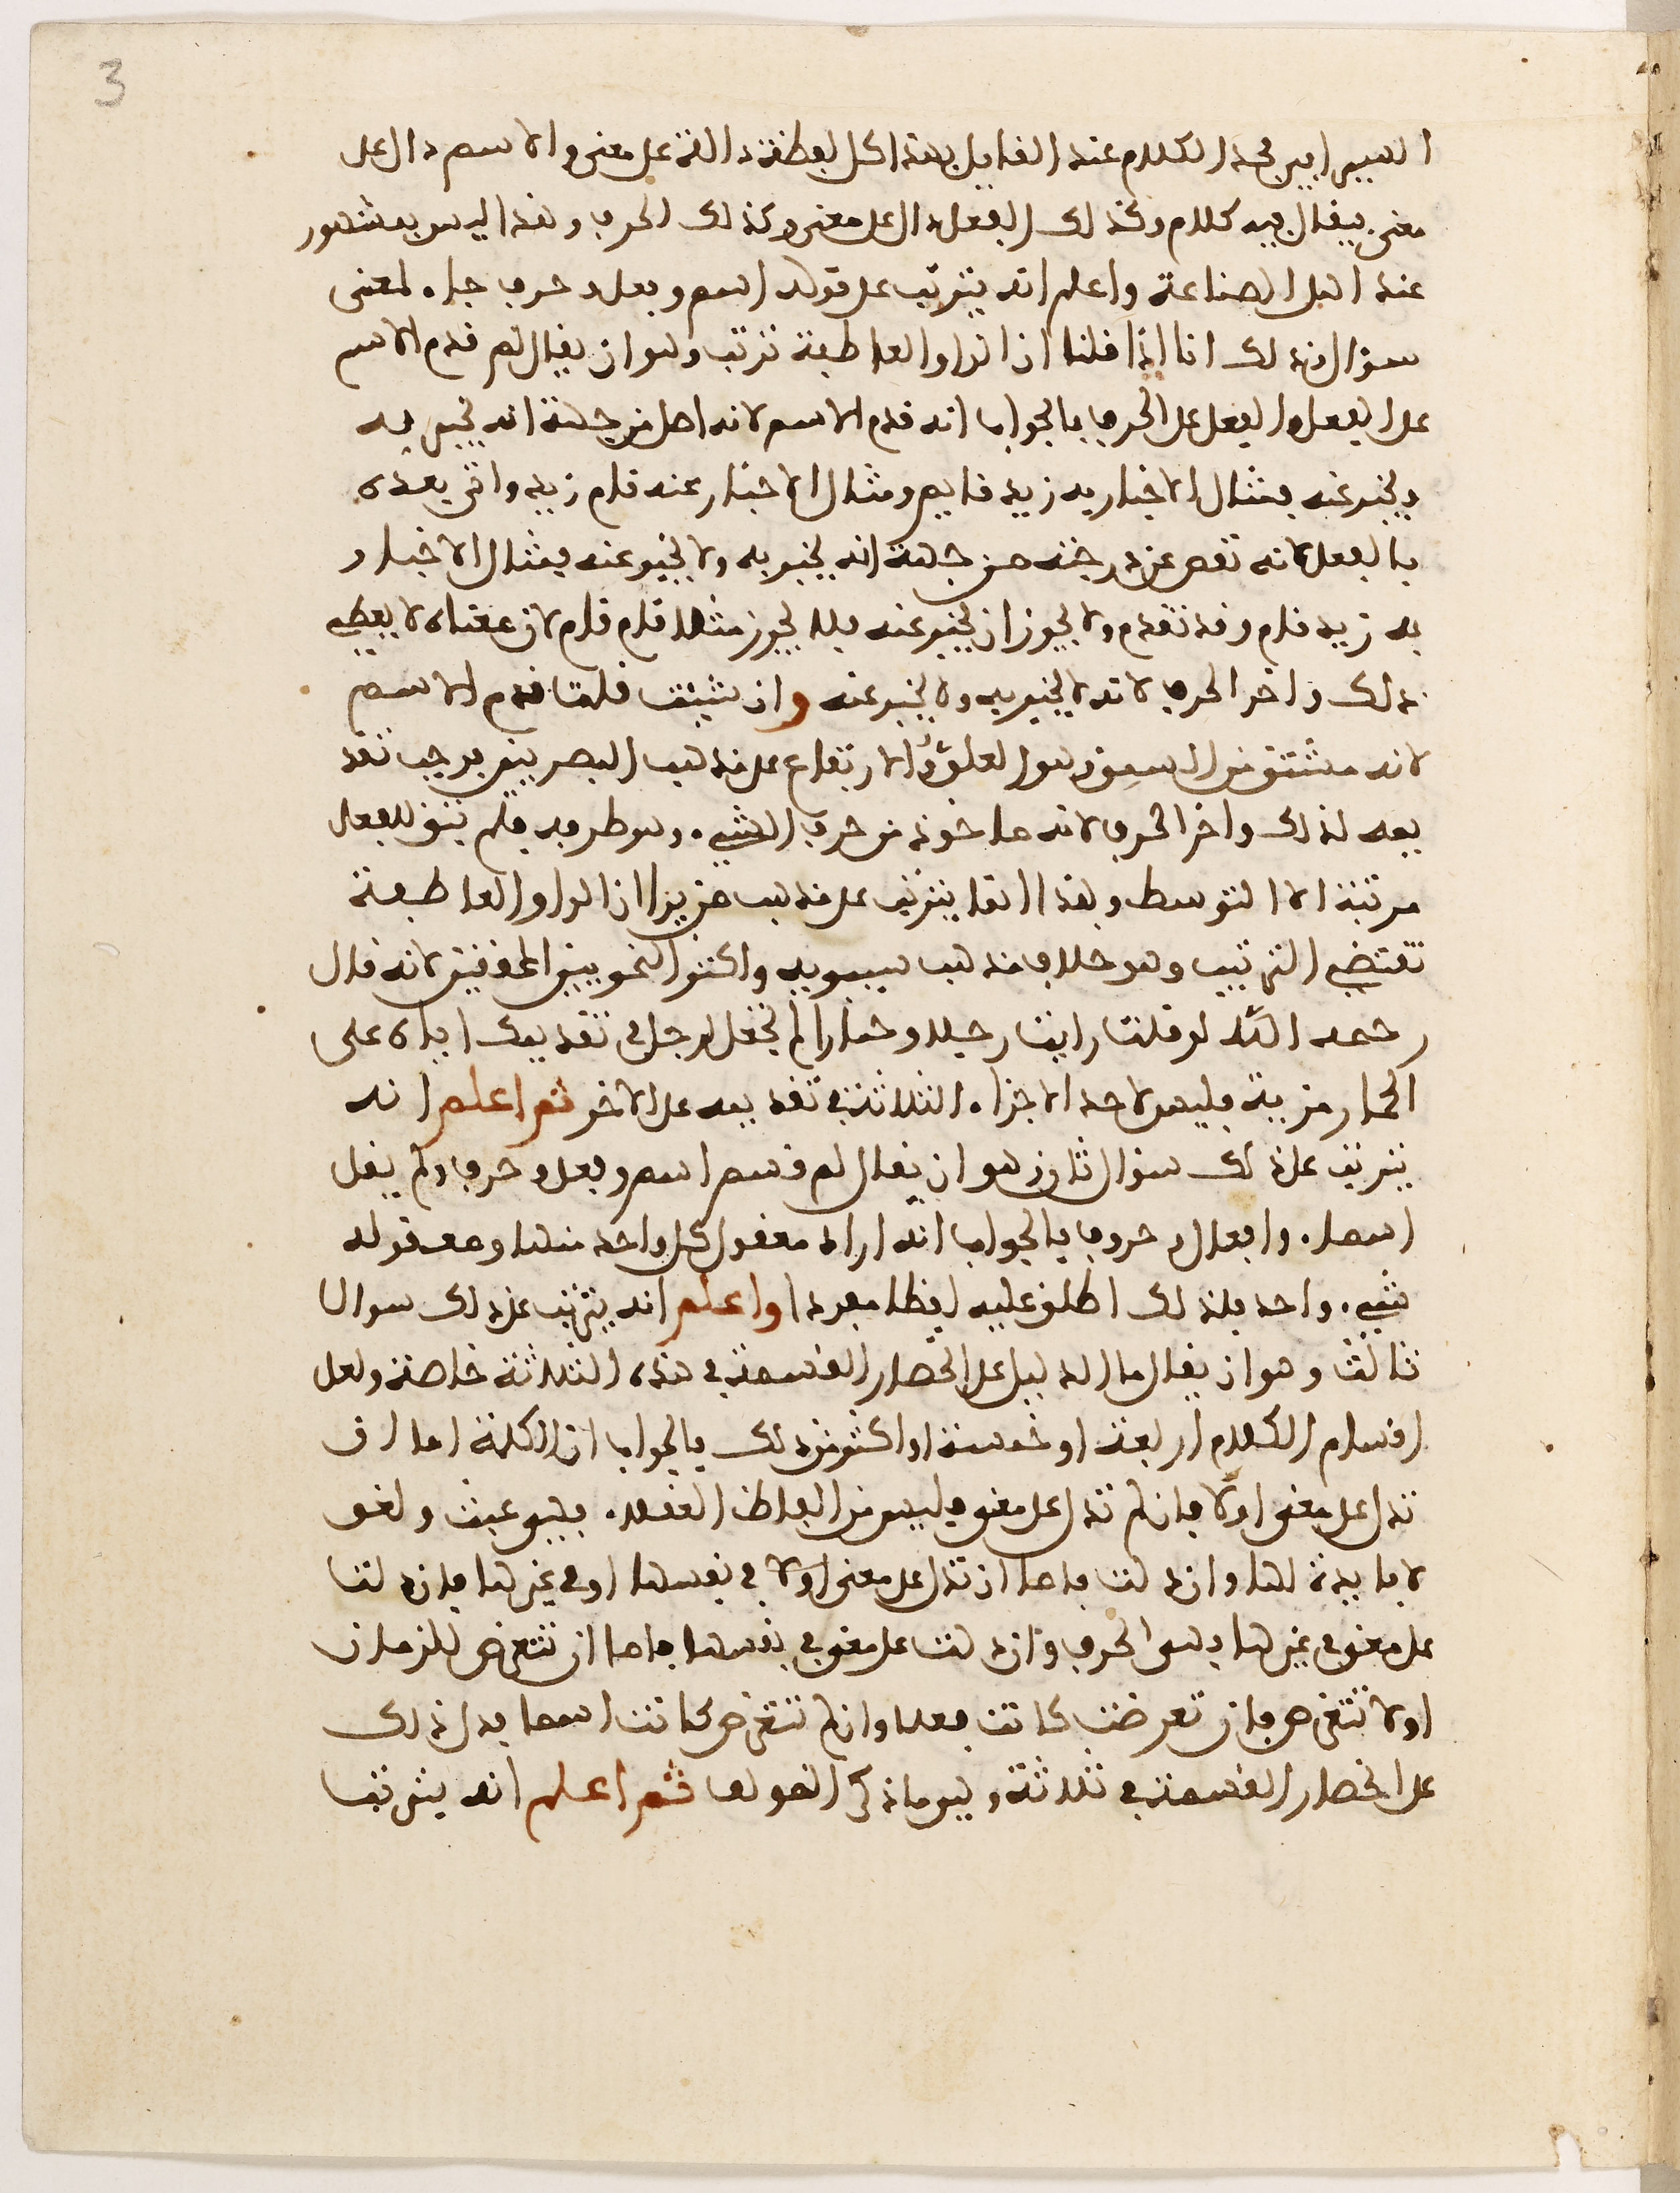 3
السيرابي فحد الكلام عند القايل بهذا كل لفظة دالة على معنى والاسم دال على
معنى فيقال فيه كلام وكذلك الفعل دال على معنى وكذلك الحرف وهذا ليس بمشهور
عند اهل الصناعة واعلم انه يترتب على قوله اسم وفعل وحرف جاء لمعنى
سؤال وذلك انا اذا قلنا ان الواو العاطفة ترتب وهو ان يقال لم قدم الاسم
على الفعل والفعل على الحرف فالجواب انه قدم الاسم لانه اصل من جهة انه يخبر به
ويخبر عنه فمثال الاخبار به زيد قايم ومثال الاخبار عنه قام زيد واتى بعده
بالفعل لانه نقص عن درجته من جهة انه يخبر به ولا يخبر عنه فمثال الاخبار
به زيد قام وقد تقدم ولا يجوز ان يخبر عنه فلا يجوز مثلا قام قام لان معناه لا يعطي
ذلك واخر الحرف لانه لا يخبر به ولا يخبر عنه وان شيت قلت قدم الاسم
لانه مشتق من السمو وهو العلو والارتفاع على مذهب البصريين فوجب تقد
يمه لذلك واخر الحرف لانه ماخوذ من حرف الشيء وهو طرفه فلم يبق للفعل
مرتبة الا التوسط وهذا انما يترتب على مذهب من يرا ان الواو العاطفة
تقتضي الترتيب وهو خلاف مذهب سيبويه واكثر النحويين المحققين لانه قال
رحمه الله لو قلت رايت رجلا وحمارا لم تجعل للرجل في تقديمك اياه على
الحمار مزية فليس لاحد الاجزاء الثلاثة في تقديمه على الاخر ثم اعلم انه
يترتب على ذلك سؤال ثان وهو ان يقال لم قسم اسم وفعل وحرف ولم يقل
اسماء وافعال وحروف فالجواب انه اراد معقول كل واحد منها ومعقوله
شيء واحد فلذلك اطلق عليه لفظا مفردا واعلم انه يترتب على ذلك سوالا
ثالث وهو ان يقال ما الدليل على انحصار القسمة في هذه الثلاثة خاصة ولعل
اقسام الكلام اربعة او خمسة او اكثر من ذلك فالجواب ان الكلمة اما ان
تدل على معنى اولا فان لم تدل على معنى فليس من الفاظ العقلاء فهو عبث ولغو
لا فايدة لها وان دلت فاما ان تدل على معنى اولا في نفسها او في غيرها فان دلت
على معنى في غيرها فهي الحرف وان دلت على معنى في نفسها فاما ان تتعرض للزمان
اولا تتعرض فان تعرضت كانت فعلا وان لم تتعرض كانت اسما فدل ذلك
على انحصار القسمة في ثلاثة وهو ما ذكر المولف ثم اعلم انه يترتب